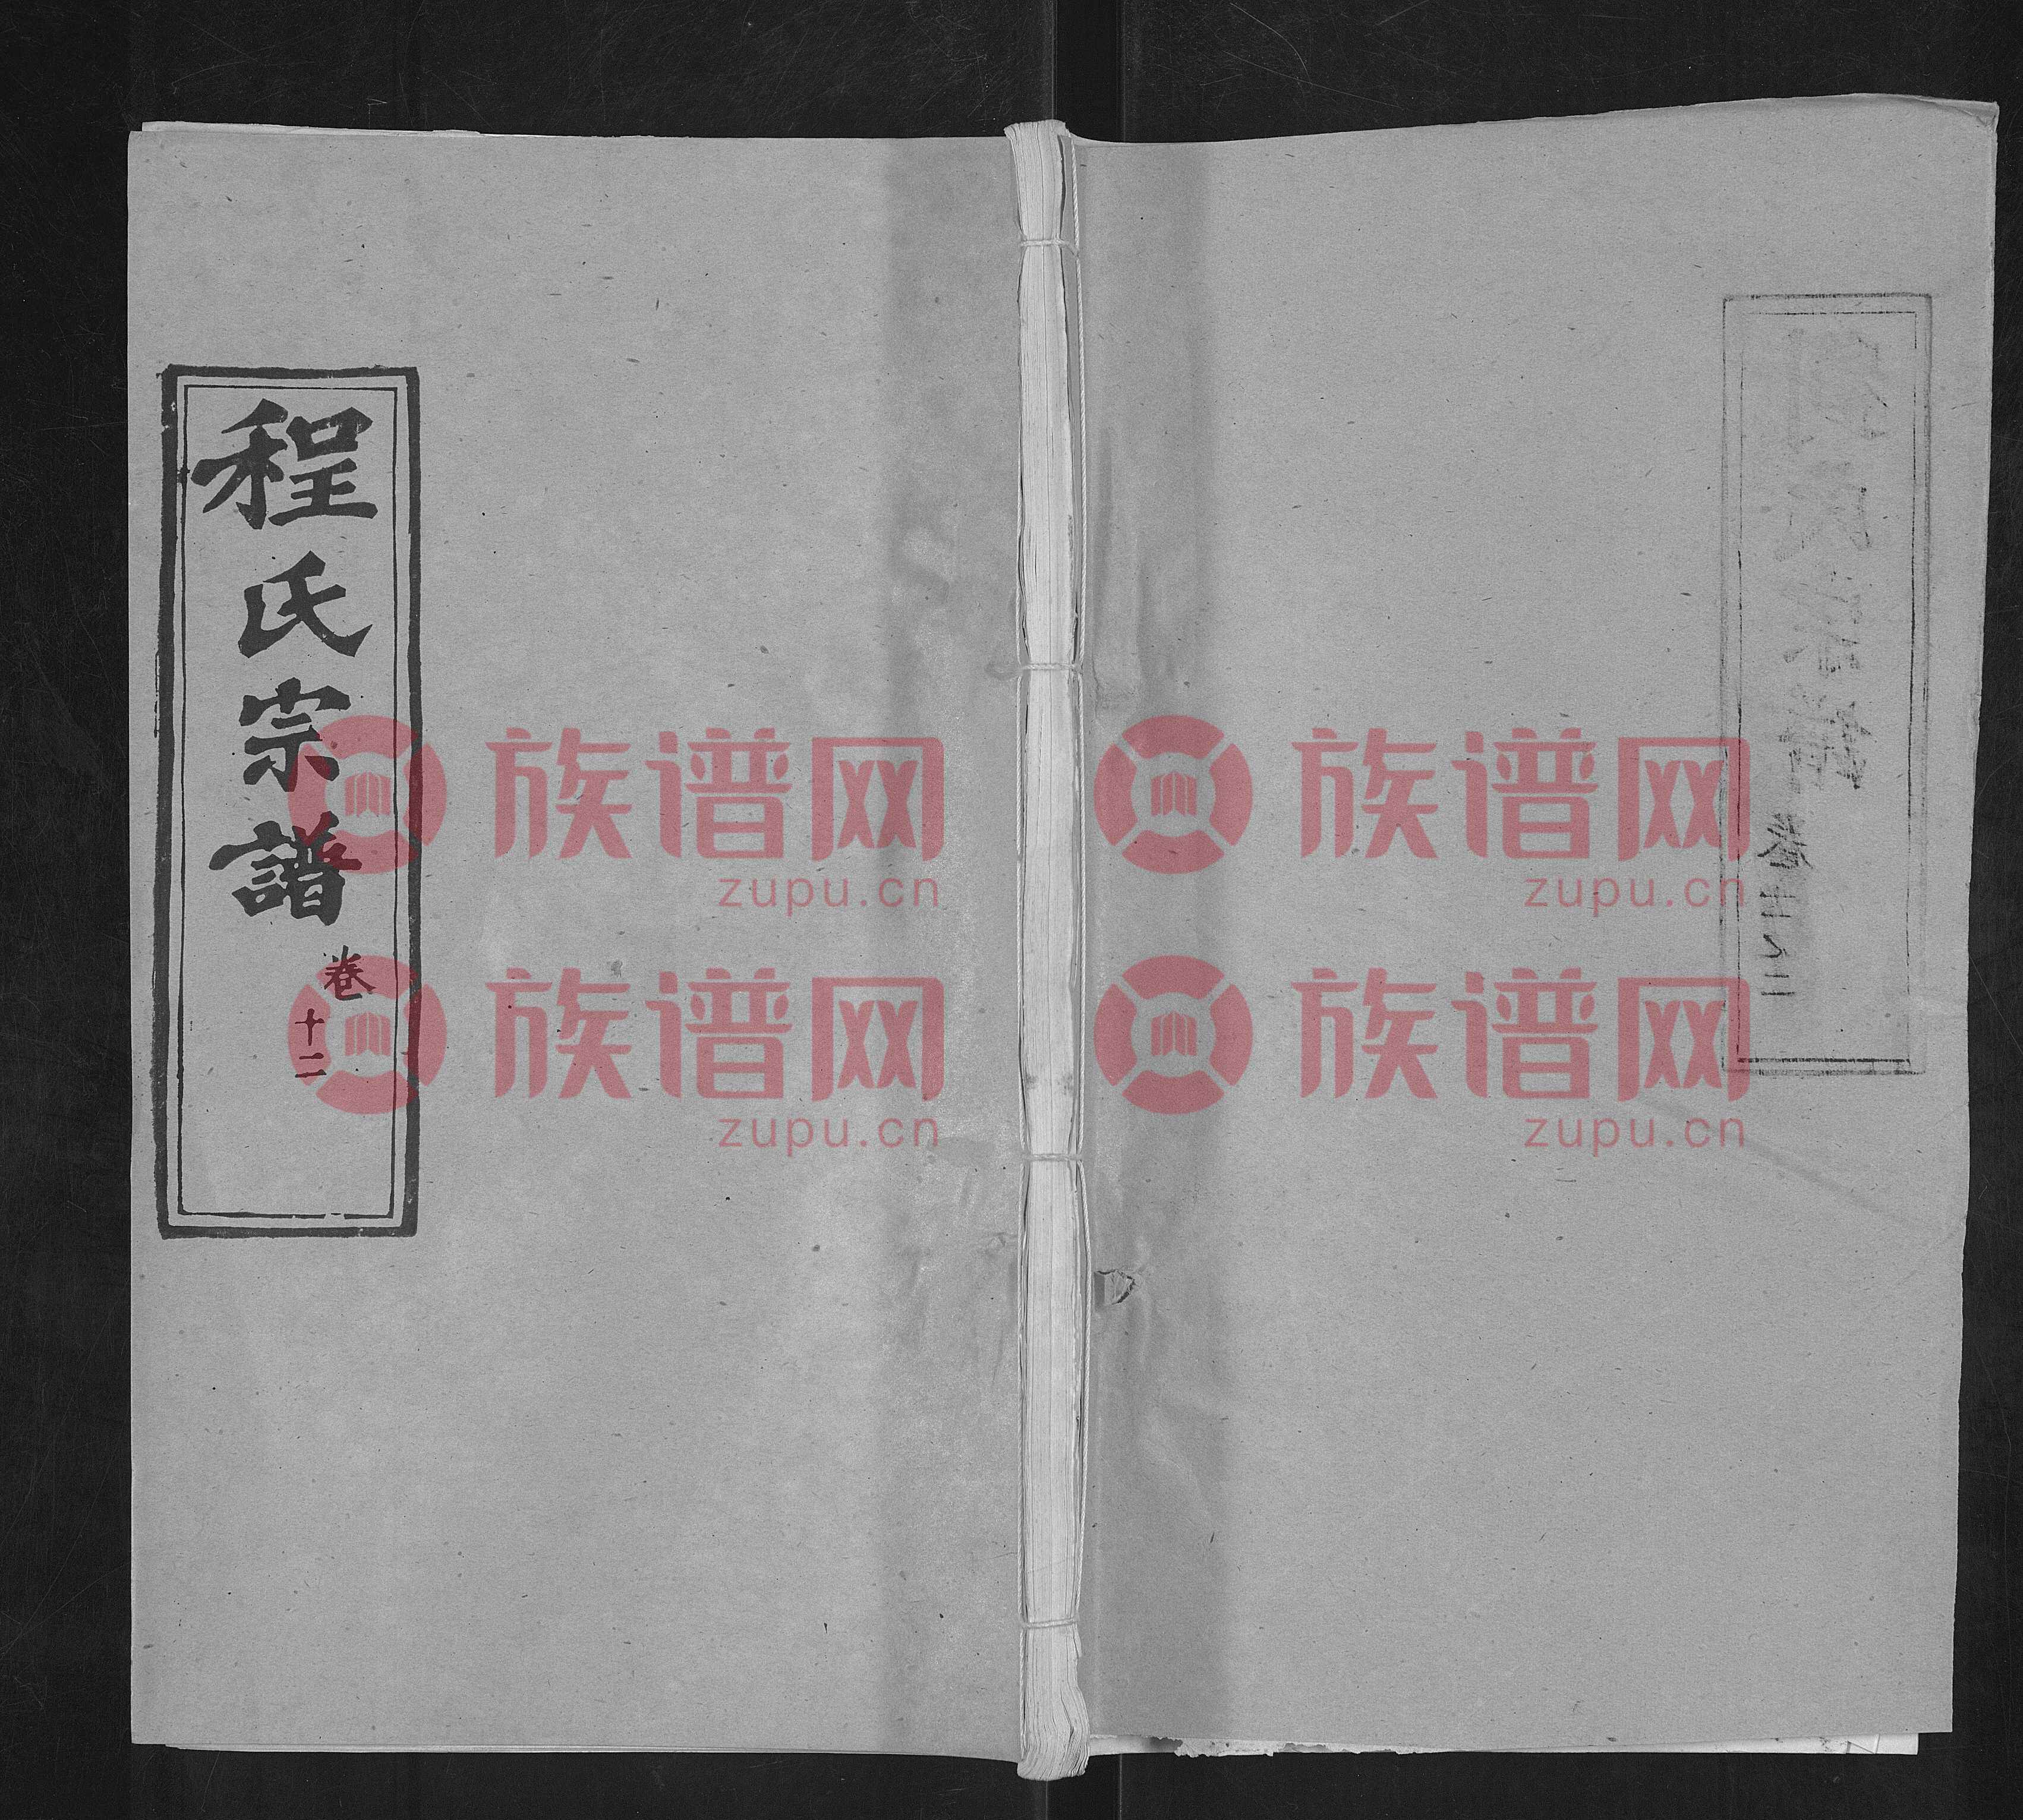 程氏宗譜
卷
十二
族谱网
zupu.cn
族谱网
zupu.cn
族谱网
zupu.cn
族谱网
zupu.cn